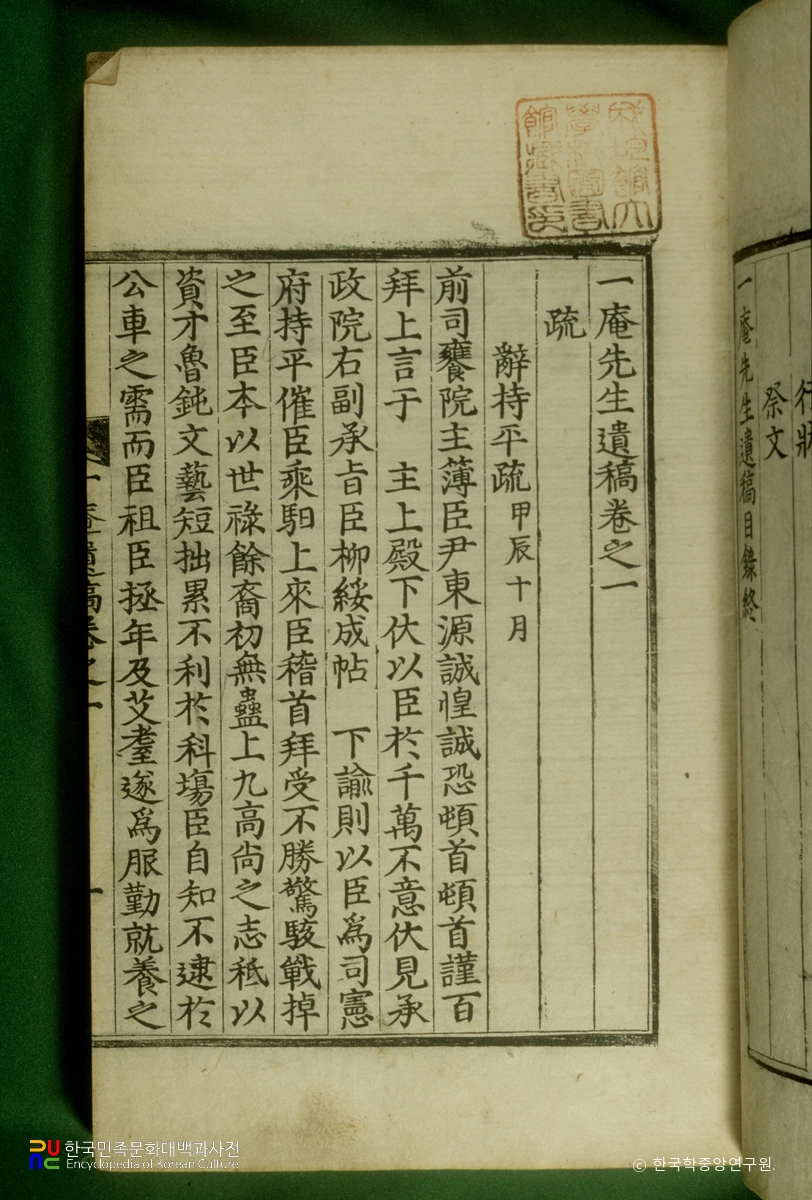 行狀
祭文
一庵先生遺稿目錄終
成均館大
學校圖書
館藏書印
一庵先生遺稿卷之一
疏
辭持平疏 甲辰十月
前司饔院主簿臣尹東源誠惶誠恐頓首頓首謹百
拜上言于 主上殿下伏以臣於千萬不意伏見承
政院右副承旨臣柳綏成帖 下諭則以臣爲司憲
府持平催臣乘馹上來臣稽首拜受不勝驚駭戰掉
之至臣本以世祿餘裔初無蠱上九高尙之志秪以
資才魯鈍文藝短拙累不利於科場臣自知不逮於
公車之需而臣祖臣拯年及艾耋遂爲服勤就養之
一庵遺稿卷之一
一
한국민족문화대백과사전
Encyclopedia of Korean Culture
© 한국학중앙연구원.